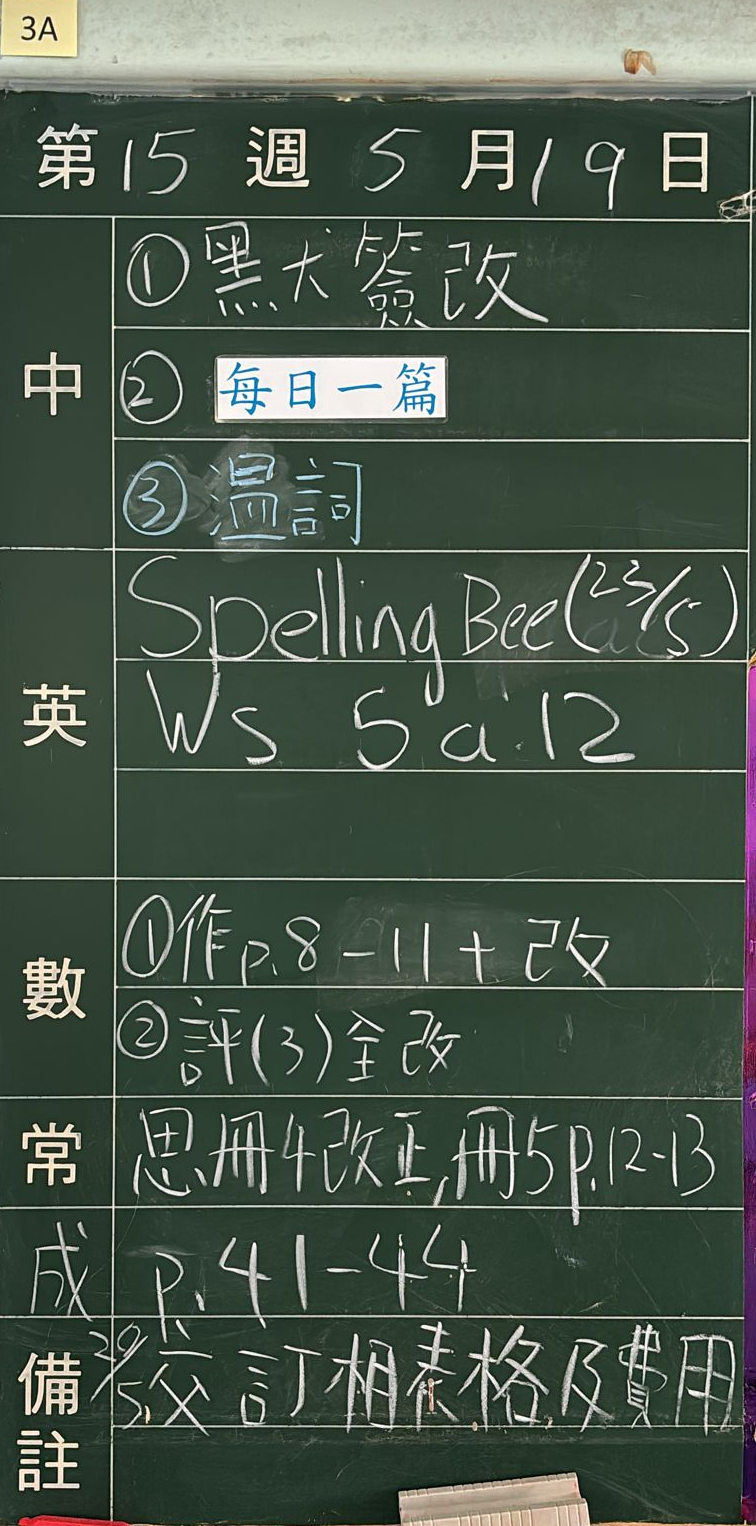 3A
第 15 週 5 月 19 日
中
① 黑大簽改
② 每日一篇
③ 溫詞
英
Spelling Bee (23/5)
Ws 5a.12
數
① 作 p.8-11 + 改
② 評(3)全改
常 思冊4改正,冊5 p.12-13
成 p.41-44
備註 20/5 交訂相表格及費用